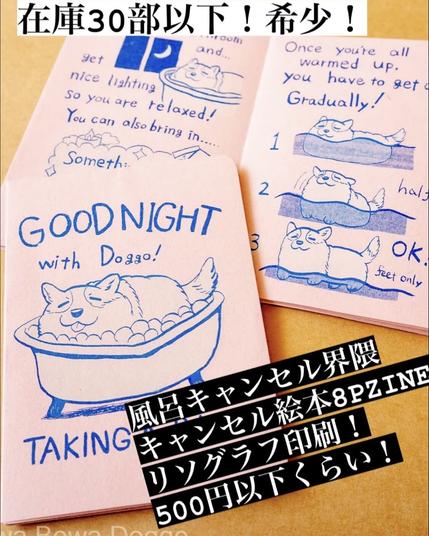 在庫30部以下！希少！
and...
get
nice lighting
so you are relaxed!
You can also bring in.....
Once you're all
warmed up,
you have to get
Gradually!
1
2
3
OK!
feet only
GOOD NIGHT
with Doggo!
TAKING
風呂キャンセル界隈
キャンセル絵本8PZINE
リソグラフ印刷！
500円以下くらい！